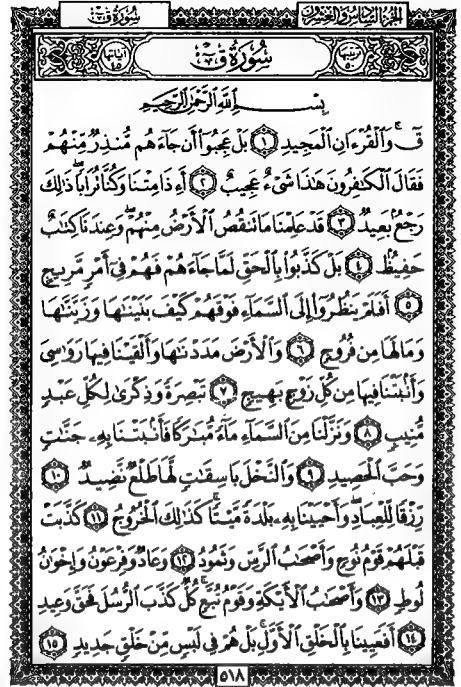 سُورَةُ قٓ
الجزء السادس والعشرون
ترتيبها ٥٠
سُورَةُ قٓ
آياتها ٤٥
بِسْمِ ٱللَّهِ ٱلرَّحْمَٰنِ ٱلرَّحِيمِ
قٓ ۚ وَٱلْقُرْءَانِ ٱلْمَجِيدِ ١ بَلْ عَجِبُوٓا۟ أَن جَآءَهُم مُّنذِرٌ مِّنْهُمْ
فَقَالَ ٱلْكَٰفِرُونَ هَٰذَا شَىْءٌ عَجِيبٌ ٢ أَءِذَا مِتْنَا وَكُنَّا تُرَابًا ۖ ذَٰلِكَ
رَجْعٌۢ بَعِيدٌ ٣ قَدْ عَلِمْنَا مَا تَنقُصُ ٱلْأَرْضُ مِنْهُمْ ۖ وَعِندَنَا كِتَٰبٌ
حَفِيظٌۢ ٤ بَلْ كَذَّبُوا۟ بِٱلْحَقِّ لَمَّا جَآءَهُمْ فَهُمْ فِىٓ أَمْرٍ مَّرِيجٍ
٥ أَفَلَمْ يَنظُرُوٓا۟ إِلَى ٱلسَّمَآءِ فَوْقَهُمْ كَيْفَ بَنَيْنَٰهَا وَزَيَّنَّٰهَا
وَمَا لَهَا مِن فُرُوجٍ ٦ وَٱلْأَرْضَ مَدَدْنَٰهَا وَأَلْقَيْنَا فِيهَا رَوَٰسِىَ
وَأَنۢبَتْنَا فِيهَا مِن كُلِّ زَوْجٍۭ بَهِيجٍ ٧ تَبْصِرَةً وَذِكْرَىٰ لِكُلِّ عَبْدٍ
مُّنِيبٍ ٨ وَنَزَّلْنَا مِنَ ٱلسَّمَآءِ مَآءً مُّبَٰرَكًا فَأَنۢبَتْنَا بِهِۦ جَنَّٰتٍ
وَحَبَّ ٱلْحَصِيدِ ٩ وَٱلنَّخْلَ بَاسِقَٰتٍ لَّهَا طَلْعٌ نَّضِيدٌ ١٠
رِّزْقًا لِّلْعِبَادِ ۖ وَأَحْيَيْنَا بِهِۦ بَلْدَةً مَّيْتًا ۚ كَذَٰلِكَ ٱلْخُرُوجُ ١١ كَذَّبَتْ
قَبْلَهُمْ قَوْمُ نُوحٍ وَأَصْحَٰبُ ٱلرَّسِّ وَثَمُودُ ١٢ وَعَادٌ وَفِرْعَوْنُ وَإِخْوَٰنُ
لُوطٍ ١٣ وَأَصْحَٰبُ ٱلْأَيْكَةِ وَقَوْمُ تُبَّعٍ ۚ كُلٌّ كَذَّبَ ٱلرُّسُلَ فَحَقَّ وَعِيدِ
١٤ أَفَعَيِينَا بِٱلْخَلْقِ ٱلْأَوَّلِ ۚ بَلْ هُمْ فِى لَبْسٍ مِّنْ خَلْقٍ جَدِيدٍ ١٥
٥١٨